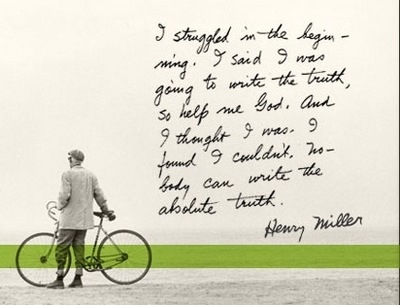 I struggled in the begin-
ning. I said I was
going to write the truth,
so help me God. And
I thought I was. I
found I couldn't. No-
body can write the
absolute truth.
Henry Miller